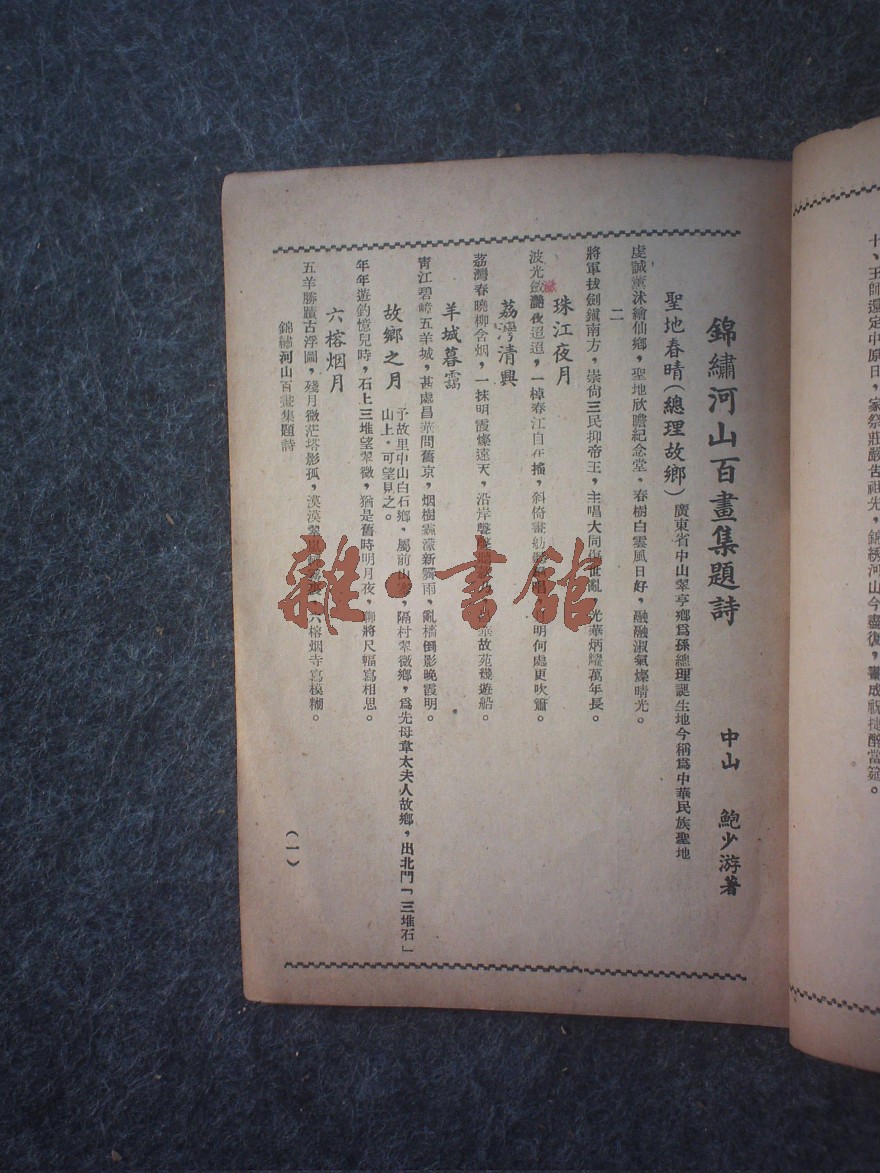 十、王師還定中原日，家祭莊嚴告祖先，錦綉河山今盡復，畫成祝捷醉當筵。
錦繡河山百畫集題詩
中山 鮑少游著
聖地春晴（總理故鄉） 廣東省中山翠亨鄉爲孫總理誕生地今稱爲中華民族聖地
虔誠薰沐繪仙鄉，聖地欣瞻紀念堂，春樹白雲風日好，融融淑氣燦晴光。
二
將軍拔劍鎮南方，崇尙三民抑帝王，主唱大同傷世亂，光華炳耀萬年長。
珠江夜月
波光斂灩夜迢迢，一棹春江自在搖，斜倚畫舫明何處更吹簫。
激
荔灣清興
荔灣春曉柳含烟，一抹明霞燦遠天，沿岸故苑幾遊船。
羊城暮靄
靑江碧嶂五羊城，甚處昌華問舊京，烟樹霏濛新霽雨，亂檣倒影晚霞明。
故鄉之月
予故里中山白石鄉，屬前山，隔村翠微鄉，爲先母韋太夫人故鄉，出北門「三堆石」
山上，可望見之。
年年遊釣憶兒時，石上三堆望翠微，猶是舊時明月夜，聊將尺幅寫相思。
六榕烟月
五羊勝蹟古浮圖，殘月微茫塔影孤，漠漠翠六榕烟寺寫模糊。
錦繡河山百畫集題詩
（一）
雜·書館